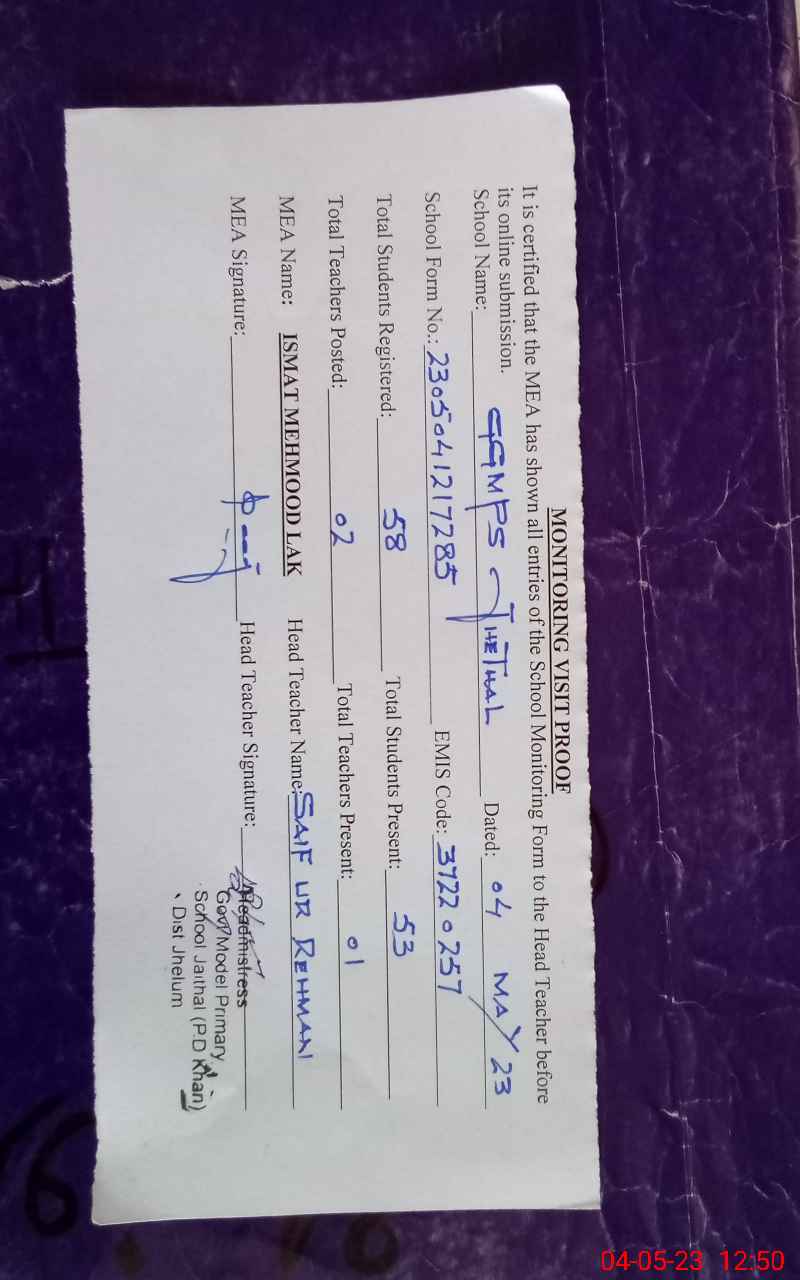 MONITORING VISIT PROOF
It is certified that the MEA has shown all entries of the School Monitoring Form to the Head Teacher before
its online submission.
School Name: GGMPS JHETHAL Dated: 04 MAY 23
School Form No.: 2305041217285 EMIS Code: 37220257
Total Students Registered: 58 Total Students Present: 53
Total Teachers Posted: 02 Total Teachers Present: 01
MEA Name: ISMAT MEHMOOD LAK Head Teacher Name: SAIF UR REHMAN
MEA Signature: Head Teacher Signature:
Headmistress
Govt Model Primary
School Jaithal (P.D Khan)
Dist Jhelum
04-05-23 12:50